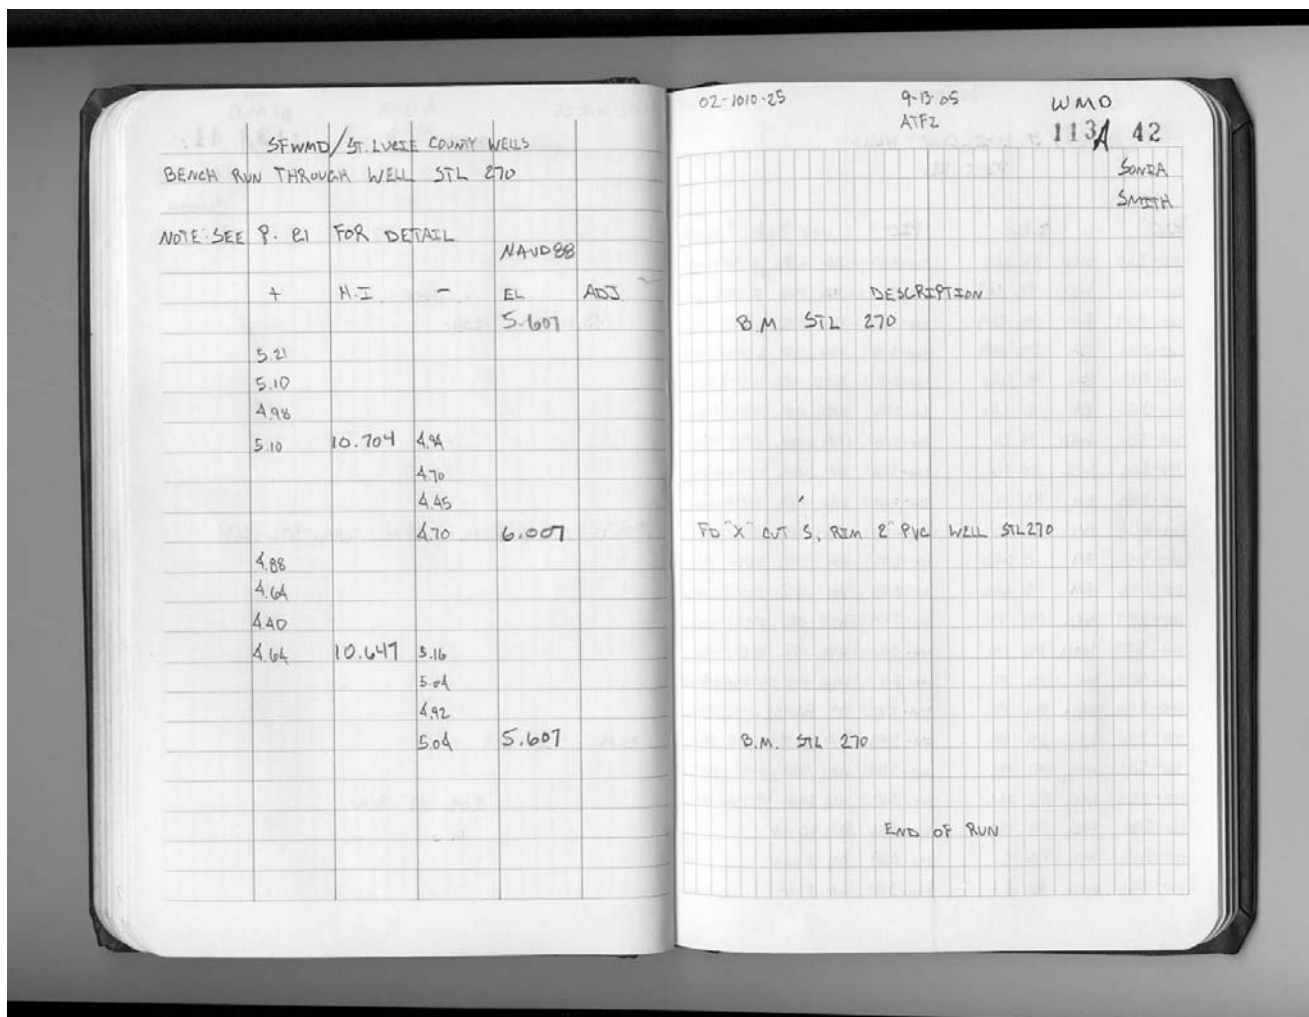 SFWMD/ST. LUCIE COUNTY WELLS
BENCH RUN THROUGH WELL STL 270
NOTE: SEE P. 21 FOR DETAIL
NAVD88
+ H.I - EL ADJ
5.607
5.21
5.10
4.98
5.10 10.704 4.94
4.70
4.45
4.70 6.007
4.88
4.64
4.40
4.64 10.647 5.16
5.04
4.92
5.04 5.607
02-1010-25 9-13-05 WMO
ATF2 113A 42
SONRA
SMITH
DESCRIPTION
B.M STL 270
FD "X" CUT S. RIM 2" PVC WELL STL270
B.M. STL 270
END OF RUN